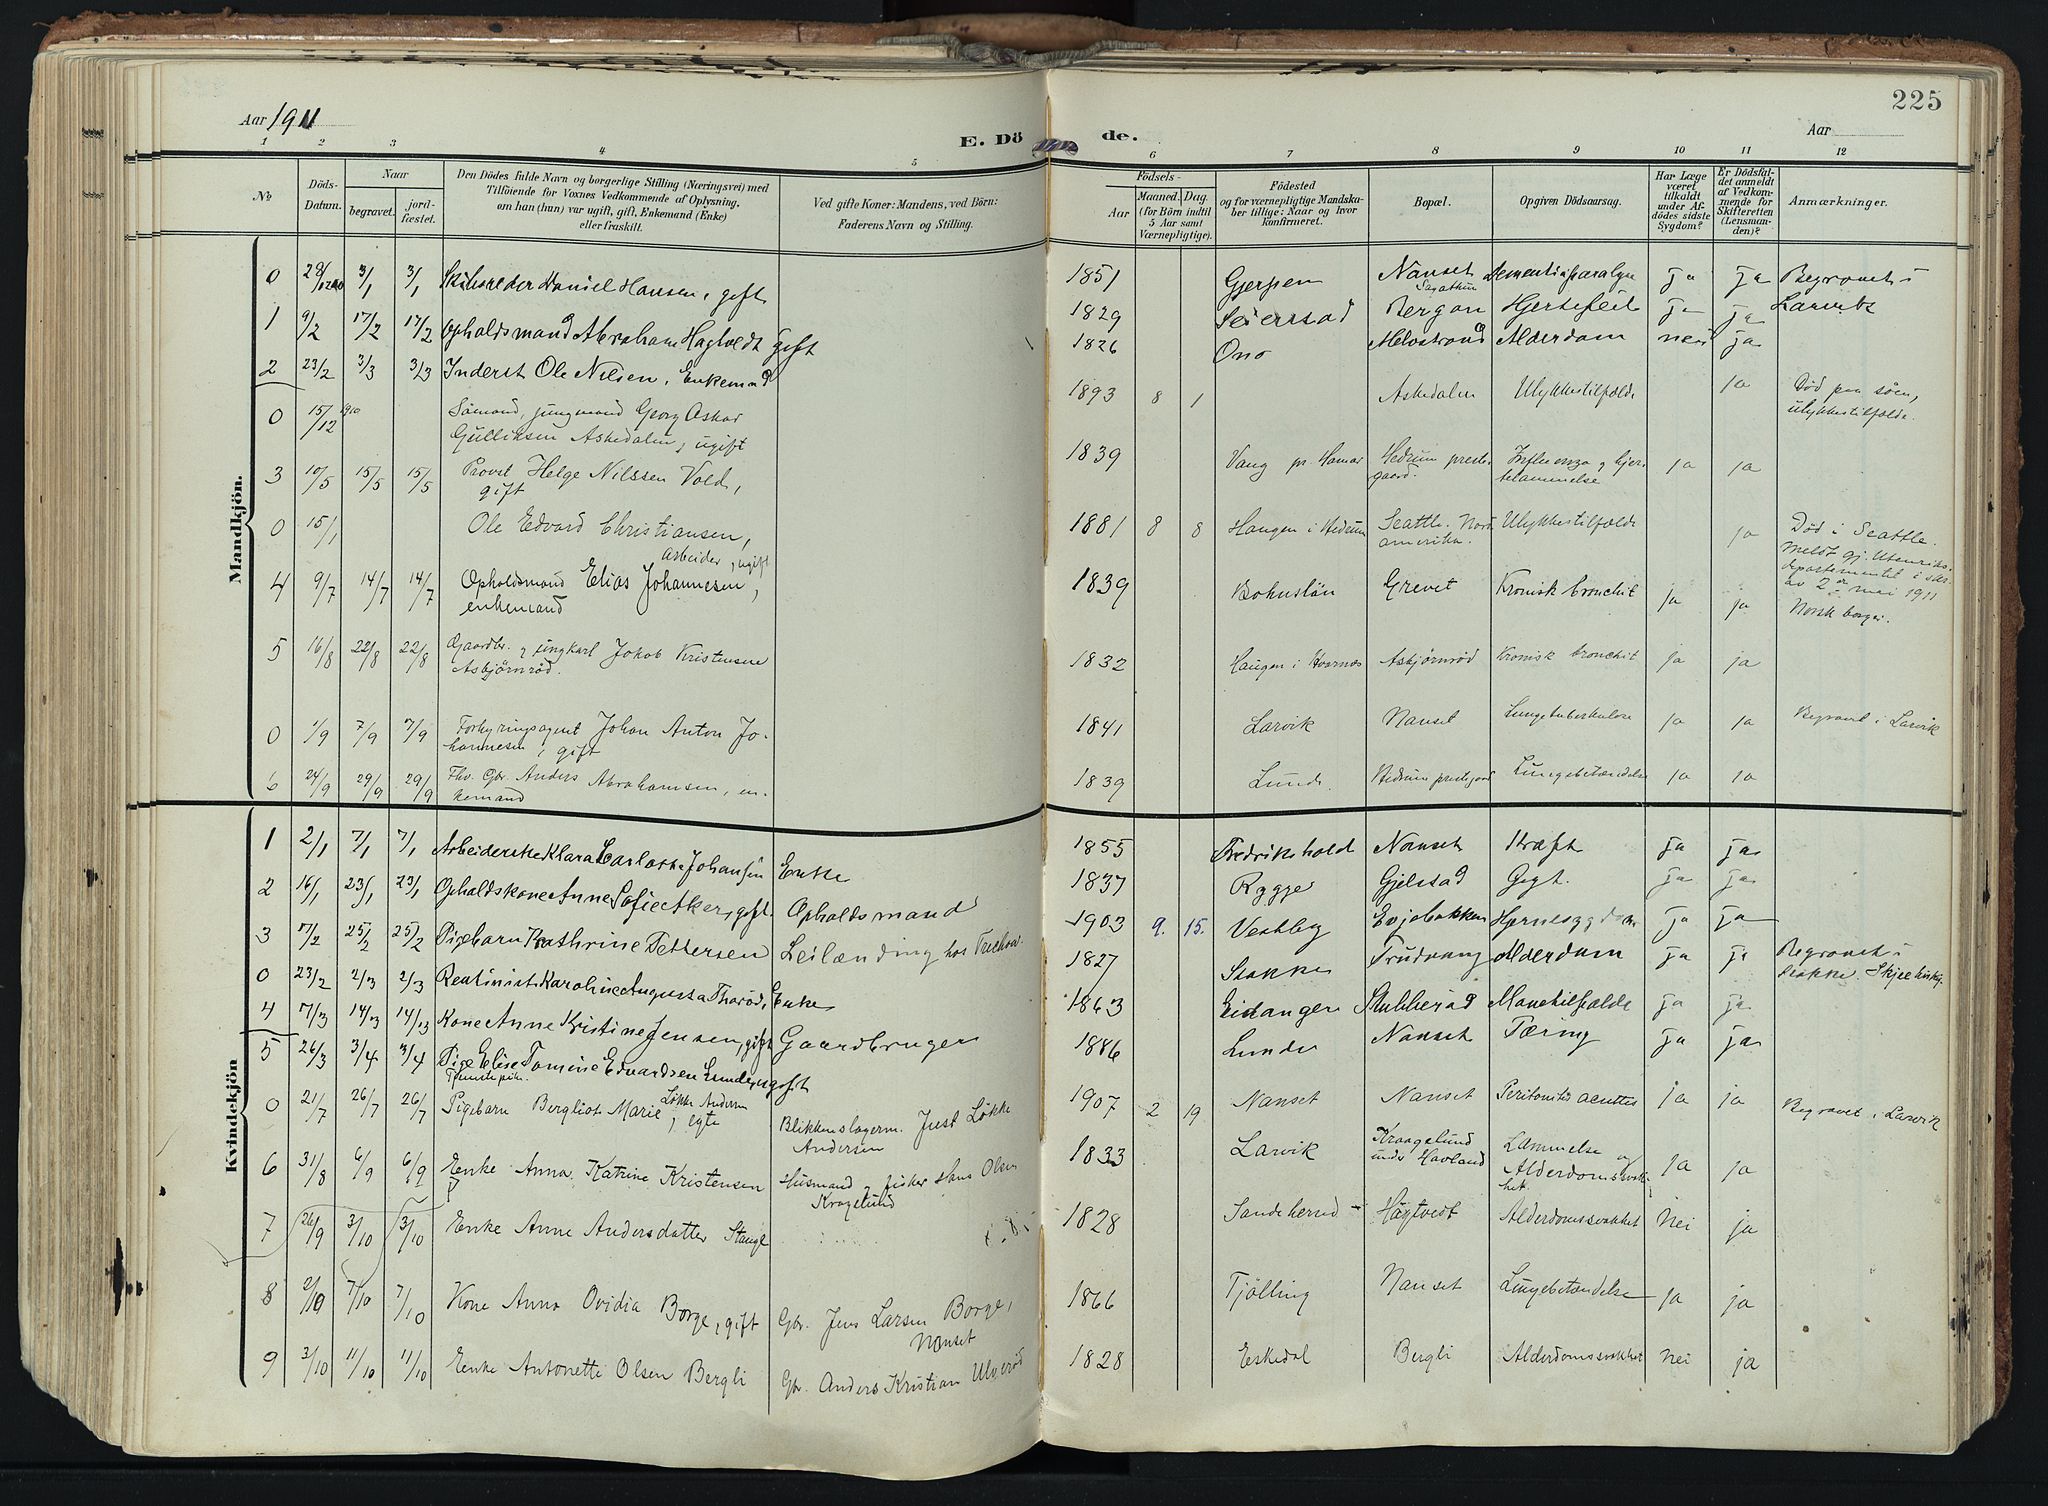 225
Aar 1911
Aar
E. Dö de.
1 2 3 4 5 6 7 8 9 10 11 12
No
Döds-Datum.
Naar
begravet.
jordfæstet.
Den Dödes fulde Navn og borgerlige Stilling (Næringsvei) med
Tilföiende for Voxnes Vedkommende af Oplysning,
om han (hun) var ugift, gift, Enkemand (Enke)
eller fraskilt.
Ved gifte Koner: Mandens, ved Börn:
Faderens Navn og Stilling.
Födsels-
Aar
Maaned. Dag.
(for Börn indtil
5 Aar samt
Værnepligtige).
Födested
og for værnepligtige Mandskaber tillige: Naar og hvor
konfirmeret.
Bopæl.
Opgiven Dödsaarsag.
Har Læge
været
tilkaldt
under Afdödes sidste
Sygdom?
Er Dödsfaldet anmeldt
af Vedkommende for
Skifteretten
(Lensmanden)?
Anmærkninger.
Mandkjön.
0 3/1 3/1 Skibsreder Daniel Hansen, gift 1851 Gjerpen Nanset Dementia paralyt ja ja Begravet i
1 9/2 17/2 17/2 Opholdsmand Abraham Hagtvedt gift 1829 Seierstad Bergan Hjertefeil ja ja Larvik
2 23/2 3/3 3/3 Inderst Ole Nilsen, Enkemand 1826 Ono Alderdom nei ja
0 15/12 1910 Sømand, jungmand Georg Oskar
Gulliksen Askedalen, ugift 1893 8 1 Askedalen Ulykkestilfælde ja Død paa søen,
ulykkestilfælde.
3 10/5 15/5 15/5 Provst Helge Nilssen Vold,
gift 1839 Vang pr Hamar Hedrum prestegaard. Influenza og hjertelammelse ja ja
0 15/1 Ole Edvard Christiansen,
Arbeider, ugift 1881 8 8 Haugen i Hedrum Seattle. Nordamerika. Ulykkestilfælde ja Død i Seattle.
Meldt gj. Utenriksdepartementet i skr.
av 2den mei 1911
Norsk borger.
4 9/7 14/7 14/7 Opholdsmand Elias Johannesen,
enkemand 1839 Bohuslän Grevet Kronisk bronchit ja ja
5 16/8 22/8 22/8 Gaardbr. og ungkarl Jakob Kristensen
Asbjørnrød. 1832 Haugen i Asbjørnrød Kronisk bronchit ja ja
0 1/9 7/9 7/9 Forhyringsagent Johan Anton Johannesen, gift 1841 Larvik Nanset Lungetuberkulose ja ja Begravet i Larvik
6 24/9 29/9 29/9 Fhv. Gbr. Anders Abrahamsen, enkemand 1839 Lunde. Hedrum prestegaard Lungebetændelse ja ja
Kvindekjön
1 2/1 7/1 7/1 Arbeiderske Klara Carlotte Johansen Enke 1855 Fredrikshald Nanset Kræft ja ja
2 16/1 23/1 23/1 Opholdskone Anne Sofie Aker, gift. Opholdsmand 1837 Rygge Gjelstad Gigt. ja ja
3 7/2 25/2 25/2 Pigebarn Kathrine Pettersen Leilænding hos 1903 9. 15. Vestby Evjebakken ja ja
0 23/2 2/3 2/3 Rentinist Karoline Augusta Thorød, Enke 1827 Stokke Trudvang Alderdom ja ja Begravet i
Stokke. Skjee kirke
4 7/3 14/3 14/3 Kone Anne Kristine Jensen, gift Gaardbruger 1863 Eidanger Stubberød Mavetilfælde ja ja
5 26/3 3/4 3/4 Pige Elise Tomine Edvardsen Lunde, ugift
Tjenestepike. 1886 Lunde Nanset Tæring ja ja
0 21/7 26/7 26/7 Pigebarn Bergliot Marie Løkke Andersen, egte Blikkenslagerm. Just Løkke
Andersen 1907 2 19 Nanset Nanset Peritonitis acuttes ja ja Begravet i Larvik
6 31/8 6/9 6/9 Enke Anna Katrine Kristensen Husmand og fisker Hans Olsen
Kragelund 1833 Larvik Kraagelund
under Havland Lammelse og
Alderdomssvakhet. ja ja
7 26/9 3/10 3/10 Enke Anne Andersdatter Stange 1828 Sandeherred Hågtvedt Alderdomssvakhet Nei ja
8 2/10 7/10 7/10 Kone Anna Ovidia Borge, gift Gbr. Jens Larsen Borge,
Nanset 1866 Tjölling Nanset Lungebetændelse ja ja
9 3/10 11/10 11/10 Enke Antonette Olsen Bergli Gbr. Anders Kristian Ulverød 1828 Eskedal Bergli Alderdomssvakhet Nei ja